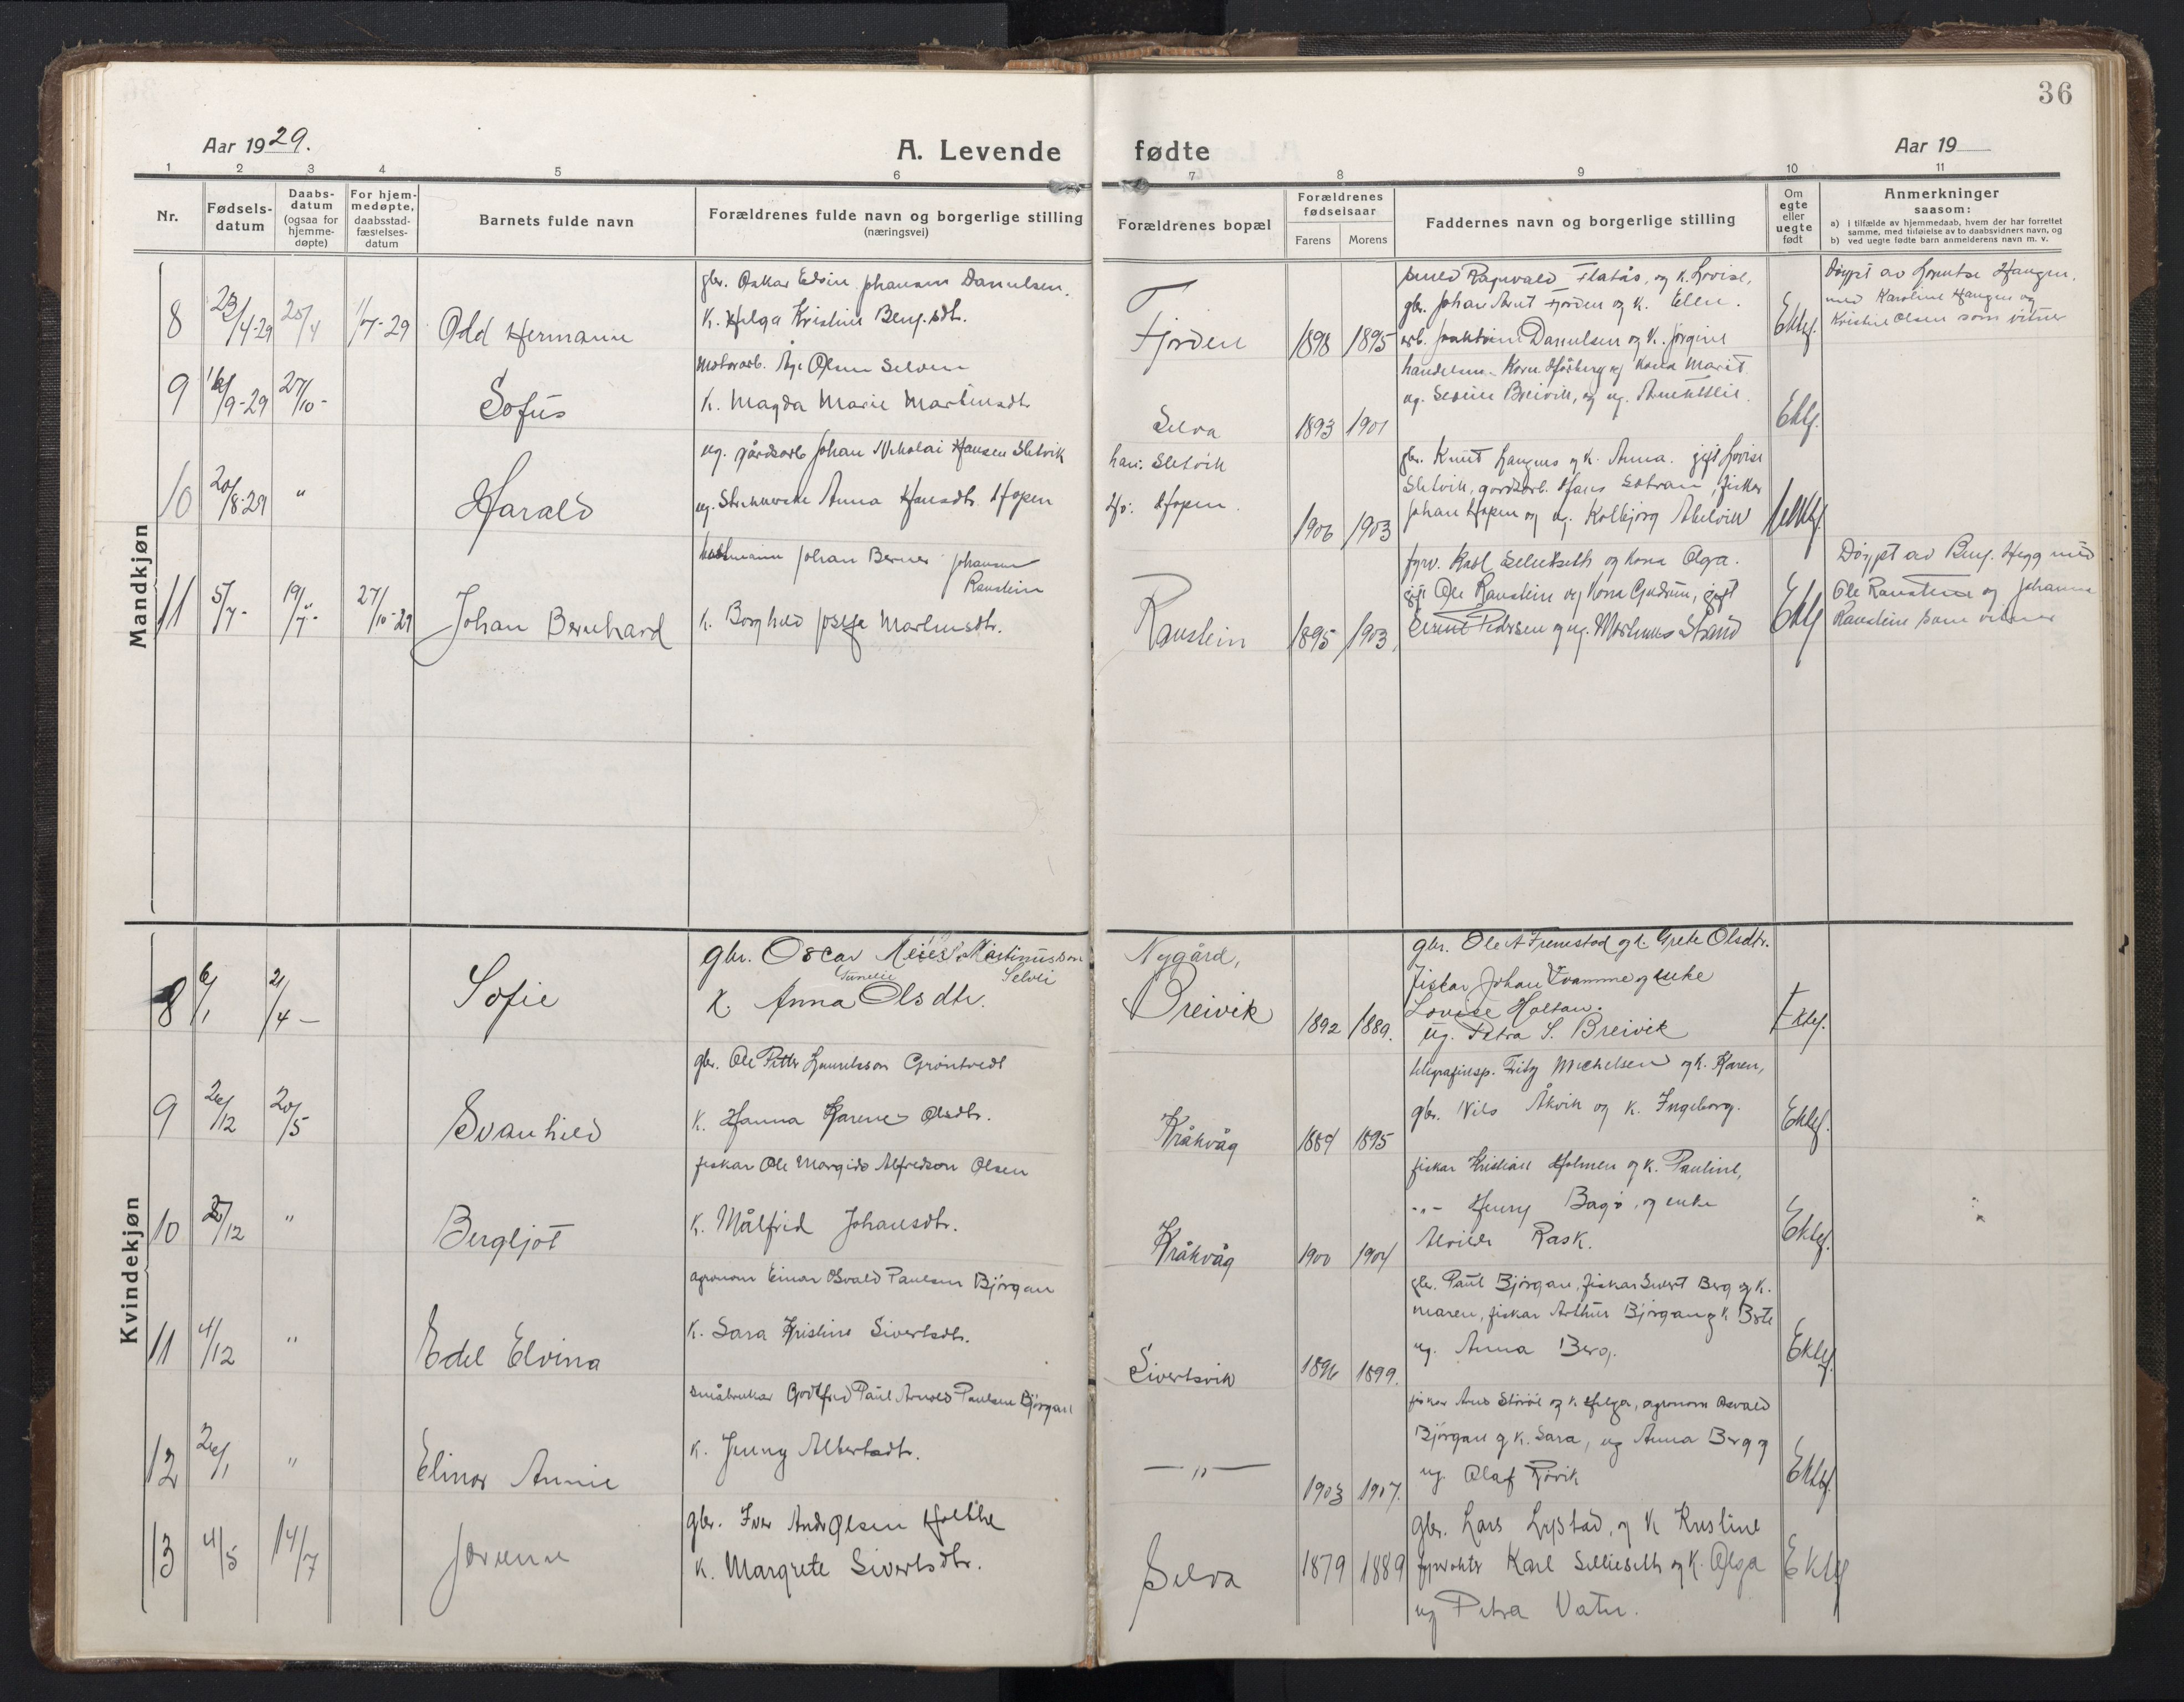 36
Aar 1929.
A. Levende fødte
Aar 19
1 2 3 4 5 6 7 8 9 10 11
Nr.
Fødsels-datum
Daabs-datum (ogsaa for hjemme-døpte)
For hjem-medøpte, daabsstad-fæstelses-datum
Barnets fulde navn
Forældrenes fulde navn og borgerlige stilling (næringsvei)
Forældrenes bopæl
Forældrenes fødselsaar
Farens Morens
Faddernes navn og borgerlige stilling
Om egte eller uegte født
Anmerkninger saasom:
a) i tilfælde av hjemmedaab, hvem der har forrettet samme, med tilføielse av to daabsvidners navn, og
b) ved uegte fødte barn anmelderens navn m. v.
Mandkjøn
8 23/4-29 25/4 1/7-29 Odd Hermann
gbr. Oskar Edvin Johansen Danielsen.
K. Helga Kristine Benj.sdtr.
Fjorden 1898 1895
Ragnvald Flatås, og K. Lovise,
gbr. Johan Arnt Fjorden og K. Ellen.
arb. Danielsen og K. Jørgine
Ektef.
Døypt av Haugen.
med Karoline Haugen og
Kristine Olsen som vitner
9 16/9-29 27/10- Sofus
motorarb. Åge Olsen Selven
K. Magda Marie Martinsdtr
Selva 1893 1901
handelsm. Korn. Hårberg og Kona Marit.
ug. Sevrine Breivik, og ug.
Ektef.
10 20/8-29 " Harald
ug. gårdsarb Johan Nikolai Hansen Sletvik
ug. Anna Hansdtr Hopen
han: Sletvik
Ho: Hopen.
1906 1903
gbr. Knut og K. Anna. gift Lovise
Sletvik, gardsarb. Hans , fisker
Johan Hopen og ug. Kolbjørg
11 5/7- 19/7- 27/10-29 Johan Bernhard
Johan Berner Johansen
Ranstein
K. Borghild Josefe Martinsdtr.
Ranstein 1895 1903
fyrv. Karl Selieseth og Kona Olga.
gift Ole Ranstein og Kona Gudrun, gift
Pedersen og ug. Martinus Strand
Ektef
Døypt av Benj. Hegg med
Ole Ranstein og Johanna
Ranstein som vitner
Kvindekjøn
8 6/1 21/4 - Sofie
gbr. Oscar Martinusson
Selvli
K. Anna Olsdtr.
Nygård,
Breivik 1892 1889.
gbr. Ole A Fremstad og k. Grete Olsdtr.
Fiskar Johan Kvamme og enke
Lovise Holtan.
ug. Petra S. Breivik
Ektef.
9 26/12 20/5 Svanhild
gbr. Ole Petter Grøntvedt
K. Hanna Karene Olsdtr.
Kråkvåg 1884 1895
telegrafinsp. Fritz Michelsen og K. Karen,
gbr. Nils Åkvik og K. Ingeborg.
Ektef.
10 /12 " Bergljot
fiskar Ole Margido Alfredson Olsen
K. Målfrid Johansdtr.
Kråkvåg 1900 1904
fiskar Kristian Holmen og K. Pauline,
-"- Henry Bagø, og enke
Alvilde Rask.
Ektef.
11 4/12 " Edel Elvina
agronom Einar Osvald Paulsen Bjørgan
K. Sara Kristine Sivertsdtr.
Sivertsvik 1896 1899.
gbr. Paul Bjørgan, fiskar Sivert Berg og K.
Maren, fiskar Arthur Bjørgan og K.
ug. Anna Berg.
Ektef.
12 26/1 " Elinor Annie
småbrukar Godtfred Paul Arnold Paulsen Bjørgan
K. Jenny Albertsdtr.
- " - 1903 1907.
fisker og K. Helga, agronom Osvald
Bjørgan og K. Sara, ug Anna Berg og
ug. Olaf Rørvik
Ektef.
13 4/5 14/7
gbr. Iver Andr Olsen Holthe
K. Margrete Sivertsdtr.
Selva 1879 1889
gbr. Lars Lystad, og K Kristine
fyrvokter Karl Sellieseth og K. Olga
ug Petra Vatn.
Ektef